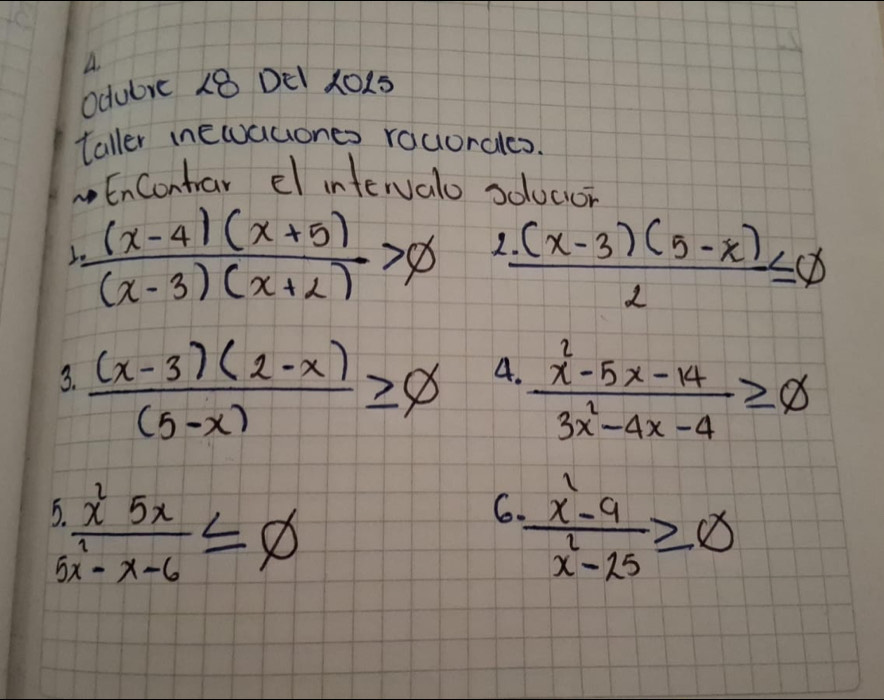 A.
Octubre 28 Del 2025
Taller inecuaciones racionales.
~> EnContrar el intervalo solución
1. (x-4)(x+5) / (x-3)(x+2) >∅ 2. (x-3)(5-x) / 2 ≤∅
3. (x-3)(2-x) / (5-x) ≥∅ 4. x²-5x-14 / 3x²-4x-4 ≥∅
5. x² 5x / 5x²-x-6 ≤ ∅ 6. x²-9 / x²-25 ≥∅